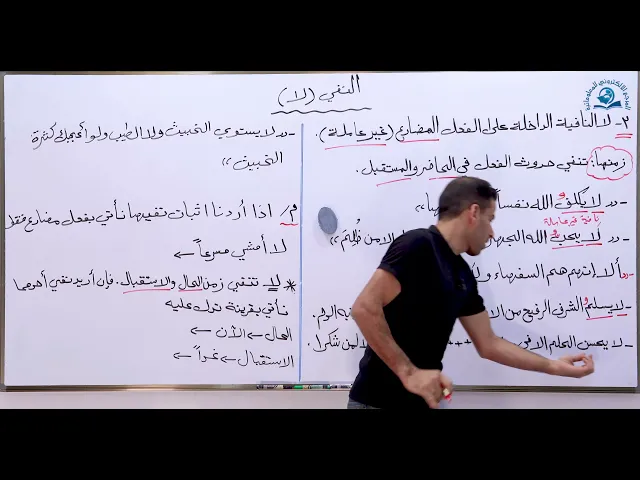 النفي (لا)
٢- لا النافية الداخلة على الفعل المضارع (غير عاملة).
زمنها: تنفي حدوث الفعل في الحاضر والمستقبل.
- (( لا يكلف الله نفساً
نافية غير عاملة
- (( لا يحب الله الجهر الا من ظُلِمَ ))
- ألا إنهم هم السفهاء
- لا يسلم الشرف الرفيع من الدم.
- لا يحسن الحلم شكرا.
- (( لا يستوي الخبيث ولا الطيب ولو أعجبك كثرة
الخبيث ))
م/ اذا أردنا اثبات نفيها نأتي بفعل مضارع فنقل
لا أمشي مسرعاً ←
* لا تنفي زمن الحال والاستقبال. فإن أريد نفي أحدهما
نأتي بقرينة تدل عليه
الحال ← الآن ←
الاستقبال ← غداً ←